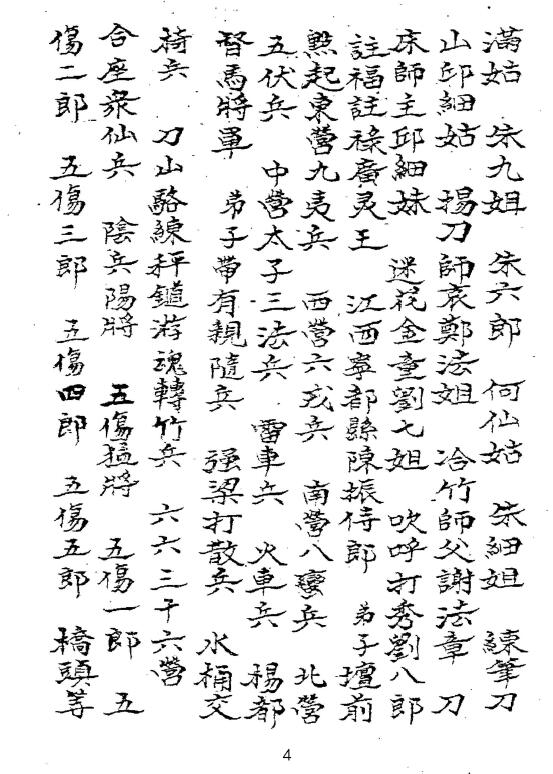 滿姑 朱九姐 朱六郎 何仙姑 朱細姐 練筆刀
山邱細姑 揚刀師哀鄭法姐 冾竹師父謝法章 刀
床師主邱細妹 迷花金童劉七姐 吹呼打秀劉八郎
註福註祿廣灵王 江西寧都縣陳振侍郎 弟子壇前
㸃起東營九夷兵 西營六戎兵 南營八蠻兵 北營
五伏兵 中營太子三法兵 雷車兵 火車兵 楊都
督馬將軍 弟子帶有親隨兵 强梁打散兵 水桶交
椅兵 刀山輅練秤鎚游魂轉竹兵 六六三千六營
合座衆仙兵 陰兵陽將 五傷猛將 五傷一郎 五
傷二郎 五傷三郎 五傷四郎 五傷五郎 橋頭等
4